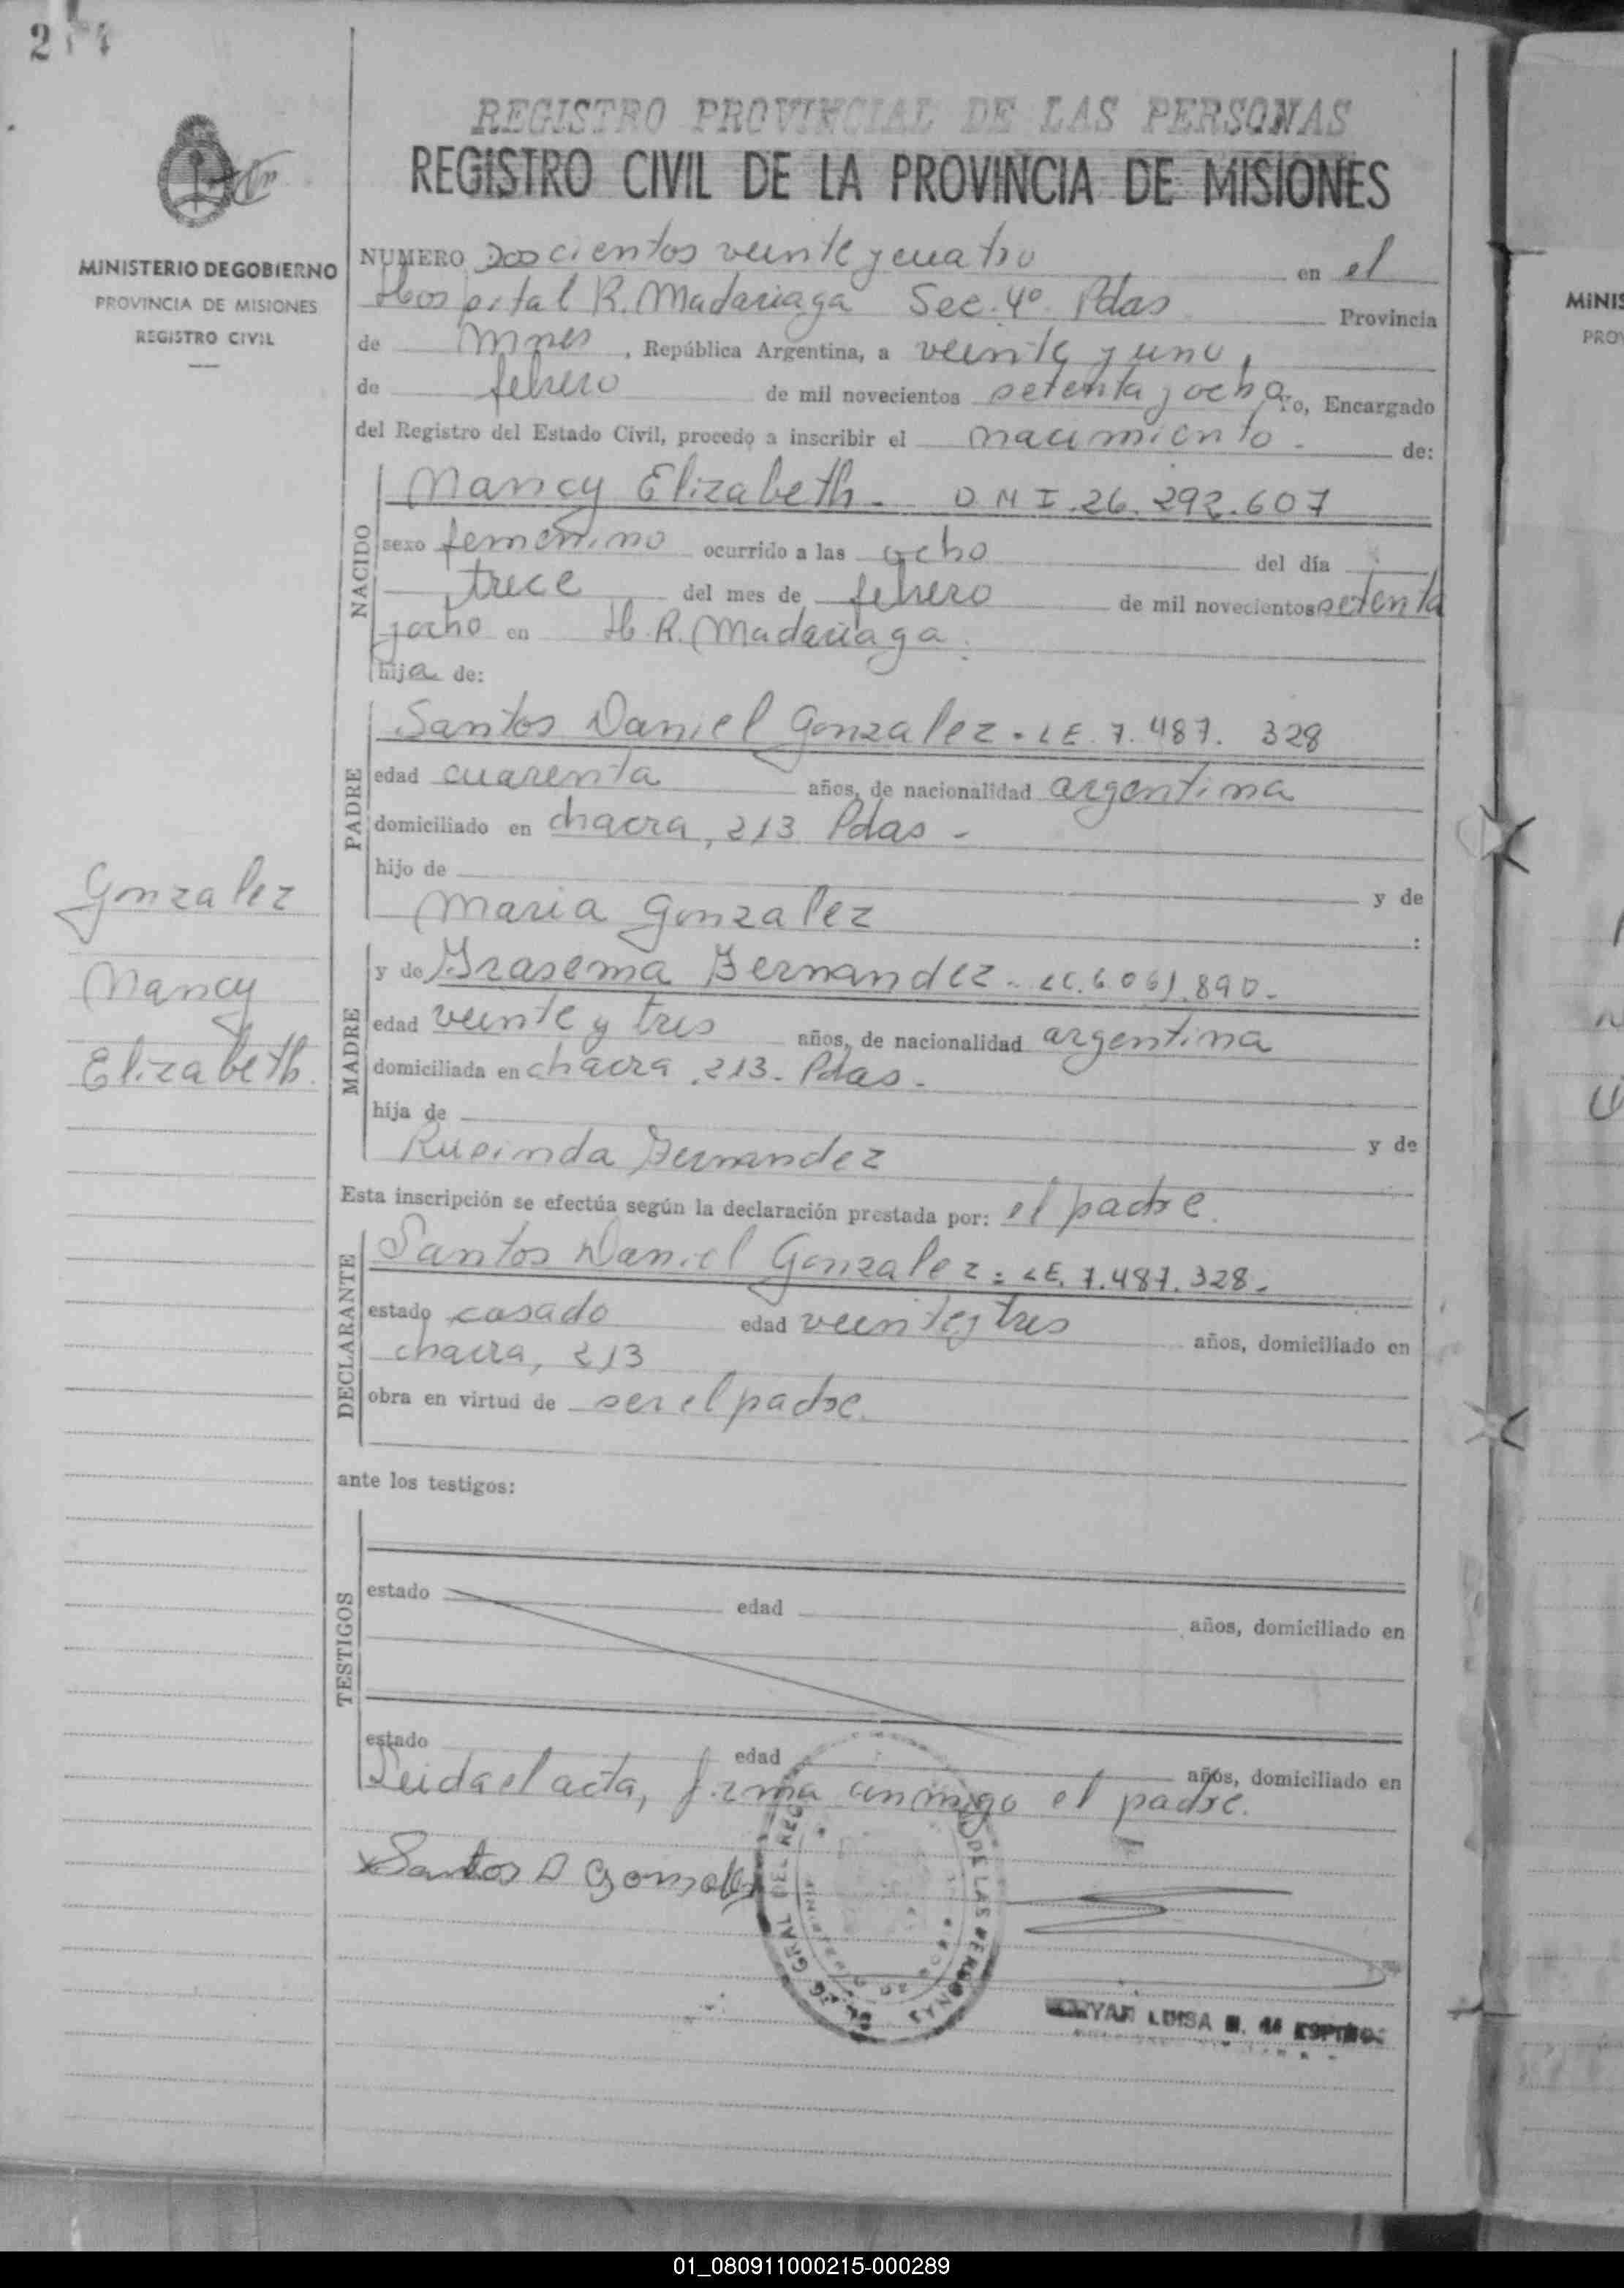 REGISTRO PROVINCIAL DE LAS PERSONAS
REGISTRO CIVIL DE LA PROVINCIA DE MISIONES
MINISTERIO DE GOBIERNO
PROVINCIA DE MISIONES
REGISTRO CIVIL
NUMERO Doscientos veinte y cuatro en el
Hospital R. Madariaga Sec. 4º Pdas Provincia
de Mnes, República Argentina, a veinte y uno,
de febrero de mil novecientos setenta y ocho Yo, Encargado
del Registro del Estado Civil, procedo a inscribir el nacimiento. de:
NACIDO
Nancy Elizabeth. D.N.I. 26.292.607
sexo femenino ocurrido a las ocho del día
trece del mes de febrero de mil novecientos setenta
y ocho en H. R. Madariaga.
hija de:
PADRE
Santos Daniel Gonzalez. LE. 7.487.328
edad cuarenta años, de nacionalidad argentina
domiciliado en chacra, 213 Pdas -
hijo de y de
Maria Gonzalez :
Gonzalez
Nancy
Elizabeth.
MADRE
y de Irasema Fernandez. LC. 6.061.890-
edad veinte y tres años, de nacionalidad argentina
domiciliada en chacra, 213- Pdas.-
hija de y de
Fernandez
Esta inscripción se efectúa según la declaración prestada por: el padre.
DECLARANTE
Santos Daniel Gonzalez= LE. 7.487.328-
estado casado edad veinte y tres años, domiciliado en
chacra, 213
obra en virtud de ser el padre.
ante los testigos:
TESTIGOS
estado edad años, domiciliado en
estado edad años, domiciliado en
Leida el acta, firma conmigo el padre.
Santos D Gonzalez
DE LAS PERSONAS
LUISA
01_080911000215-000289